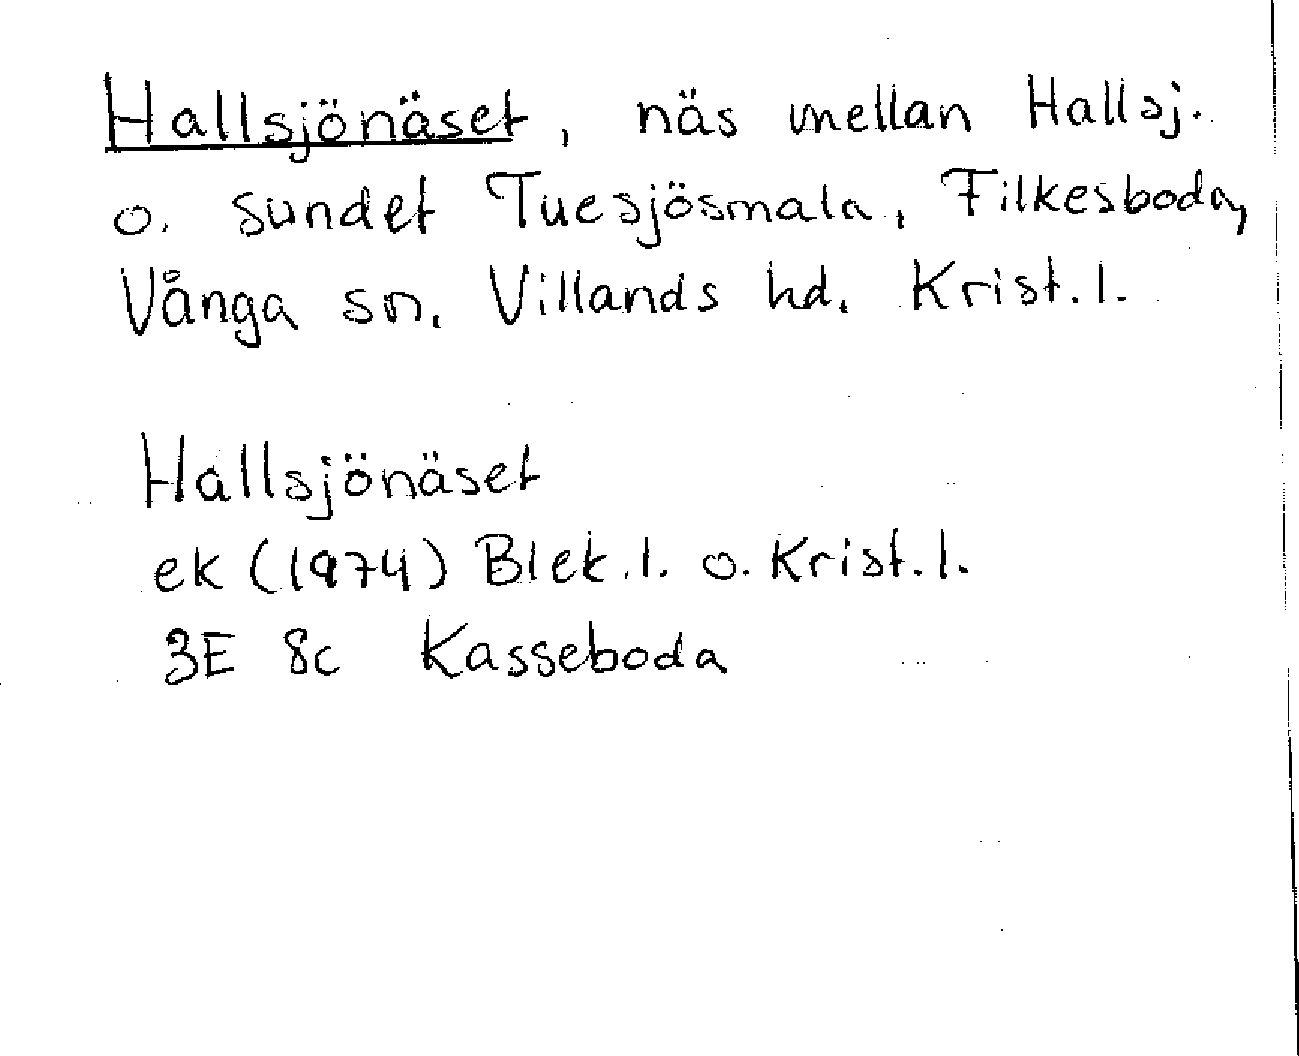 Hallsjönäset, näs mellan Hallsj.
o. sundet Tuesjösmala, Filkesboda,
Vånga sn. Villands hd. Krist.l.
Hallsjönäset
ek (1974) Blek.l. o. Krist.l.
3E 8c Kasseboda